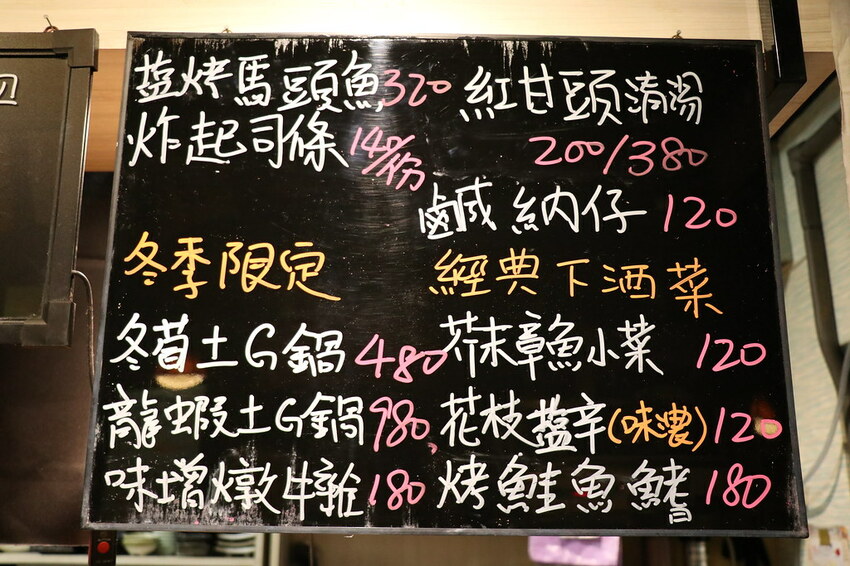 塩烤馬頭魚 320
炸起司條 140/份
冬季限定
冬荀土G鍋 480
龍蝦土G鍋 980
味增燉牛 180
紅甘頭清湯
200/380
鹹納仔 120
經典下酒菜
芥末章魚小菜 120
花枝盬辛(味濃) 120
烤鮭魚鰭 180